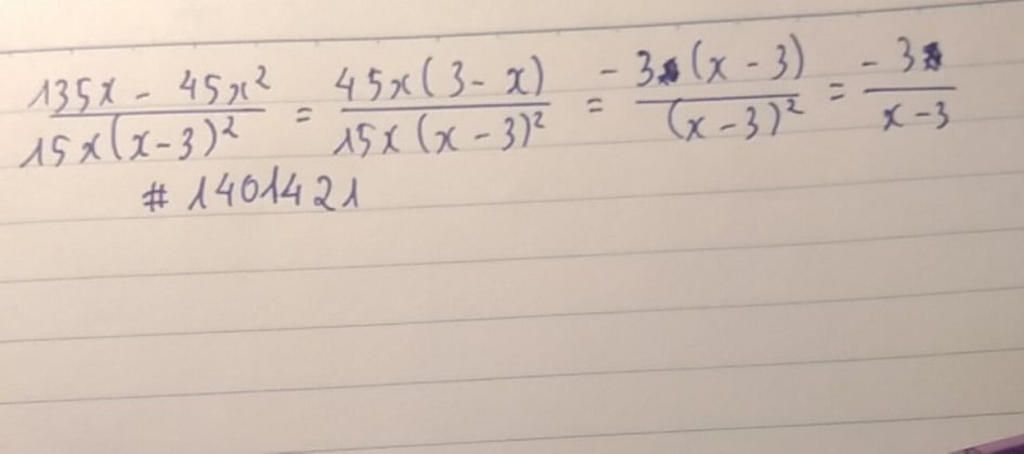 (135x - 45x²)/(15x(x-3)²) = (45x(3-x))/(15x(x-3)²) = (-3(x-3))/((x-3)²) = (-3)/(x-3)
# 1401421